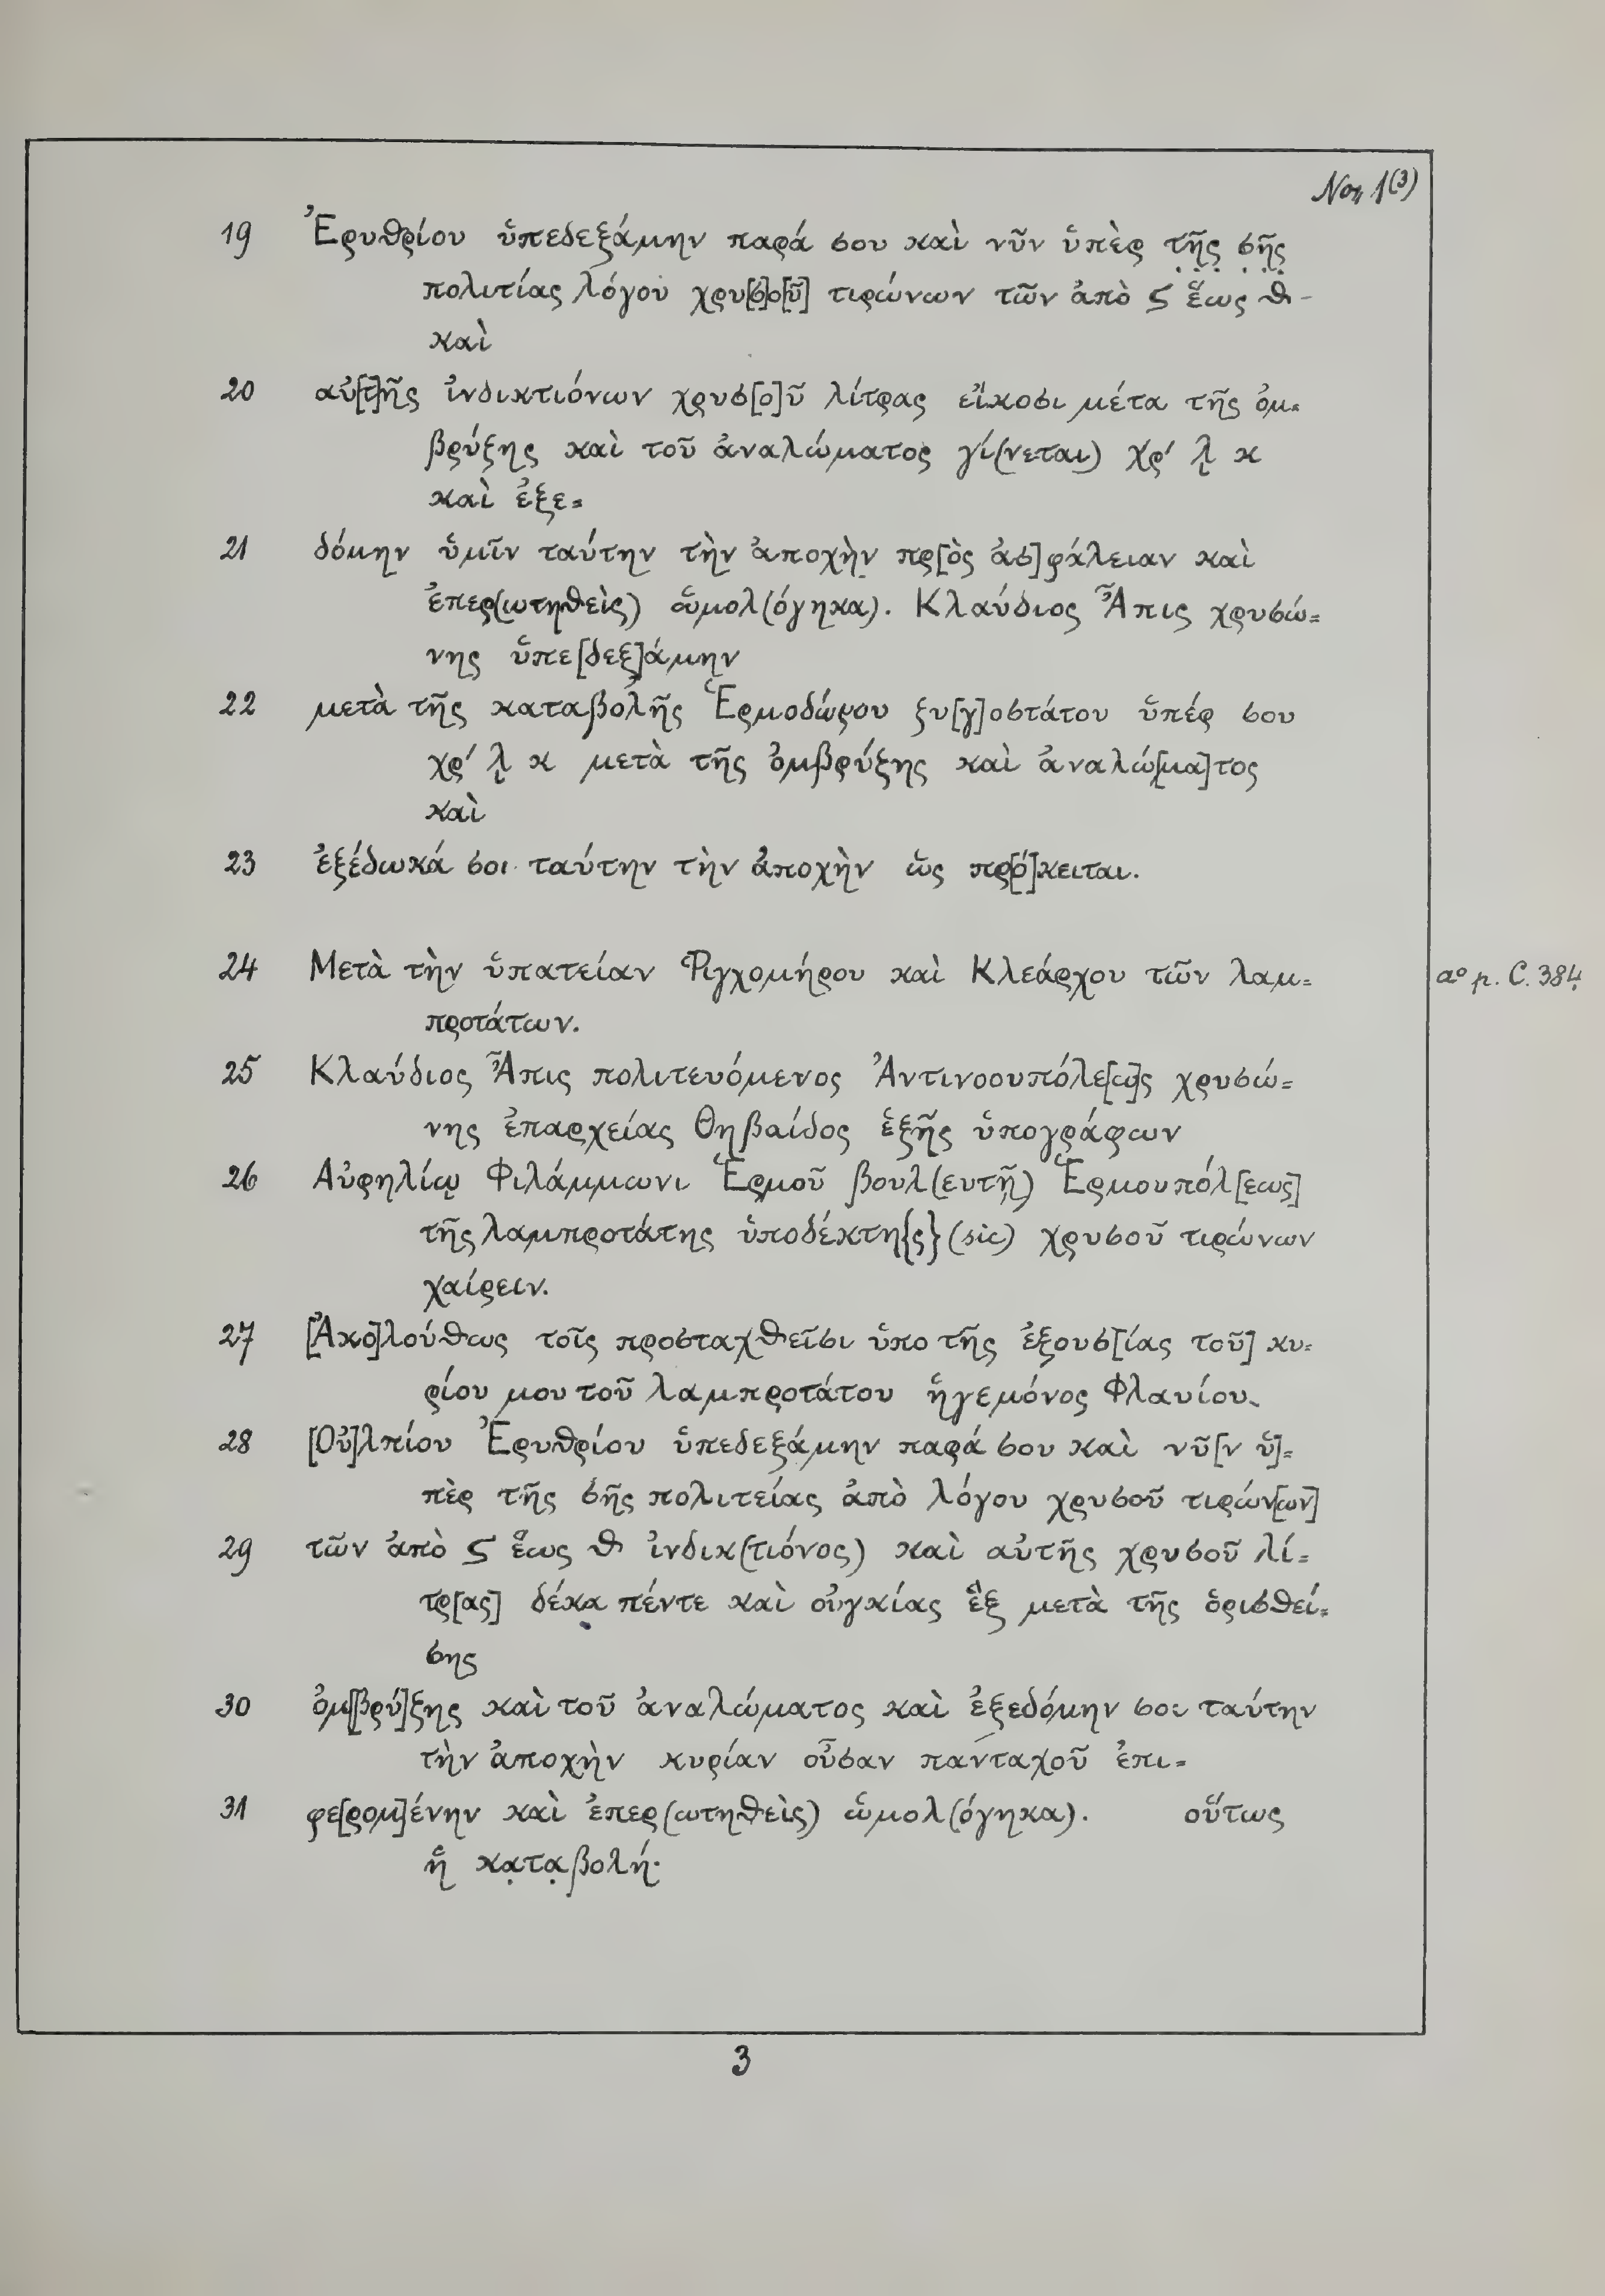 No. 1(3)
19 Ἐρυθρίου ὑπεδεξάμην παρά σου καὶ νῦν ὑπὲρ τ̣ῆ̣ς̣ σ̣ῆ̣ς̣
πολιτίας λόγου χρυ[σ]ο[ῦ] τιρώνων τῶν ἀπὸ ϛ ἕως θ -
καὶ
20 αὐ[τ]ῆς ἰνδικτιόνων χρυσ[ο]ῦ λίτρας εἴκοσι μέτα τῆς ὀμ=
βρύξης καὶ τοῦ ἀναλώματος γί(νεται) χρ′ λ κ
καὶ ἐξε=
21 δόμην ὑμῖν ταύτην τὴν ἀποχὴν πρ[ὸς ἀσ]φάλειαν καὶ
ἐπερ(ωτηθεὶς) ὡμολ(όγηκα). Κλαύδιος Ἆπις χρυσώ=
νης ὑπε[δεξ]άμην
22 μετὰ τῆς καταβολῆς Ἑρμοδώρου ξυ[γ]οστάτου ὑπέρ σου
χρ′ λ κ μετὰ τῆς ὀμβρύξης καὶ ἀναλώ[μα]τος
καὶ
23 ἐξέδωκά σοι ταύτην τὴν ἀποχὴν ὡς πρ[ό]κειται.
24 Μετὰ τὴν ὑπατείαν Ῥιγχομήρου καὶ Κλεάρχου τῶν λαμ=
προτάτων.
a° p. C. 384
25 Κλαύδιος Ἆπις πολιτευόμενος Ἀντινοουπόλε[ω]ς χρυσώ=
νης ἐπαρχείας Θηβαίδος ἑξῆς ὑπογράφων
26 Αὐρηλίῳ Φιλάμμωνι Ἑρμοῦ βουλ(ευτῇ) Ἑρμουπόλ[εως]
τῆς λαμπροτάτης ὑποδέκτη{ς} (sic) χρυσοῦ τιρώνων
χαίρειν.
27 [Ἀκο]λούθως τοῖς προσταχθεῖσι ὑπο τῆς ἐξουσ[ίας τοῦ] κυ=
ρίου μου τοῦ λαμπροτάτου ἡγεμόνος Φλαυίου
28 [Οὐ]λπίου Ἐρυθρίου ὑπεδεξάμην παρά σου καὶ νῦ[ν ὑ]=
πὲρ τῆς σῆς πολιτείας ἀπὸ λόγου χρυσοῦ τιρών[ων]
29 τῶν ἀπὸ ϛ ἕως θ ἰνδικ(τιόνος) καὶ αὐτῆς χρυσοῦ λί=
τρ[ας] δέκα πέντε καὶ οὐγκίας ἓξ μετὰ τῆς ὁρισθεί=
σης
30 ὀμ[βρύ]ξης καὶ τοῦ ἀναλώματος καὶ ἐξεδόμην σοι ταύτην
τὴν ἀποχὴν κυρίαν οὖσαν πανταχοῦ ἐπι=
31 φε[ρομ]ένην καὶ ἐπερ(ωτηθεὶς) ὡμολ(όγηκα). οὕτως
ἡ κα̣τα̣βολή·
3